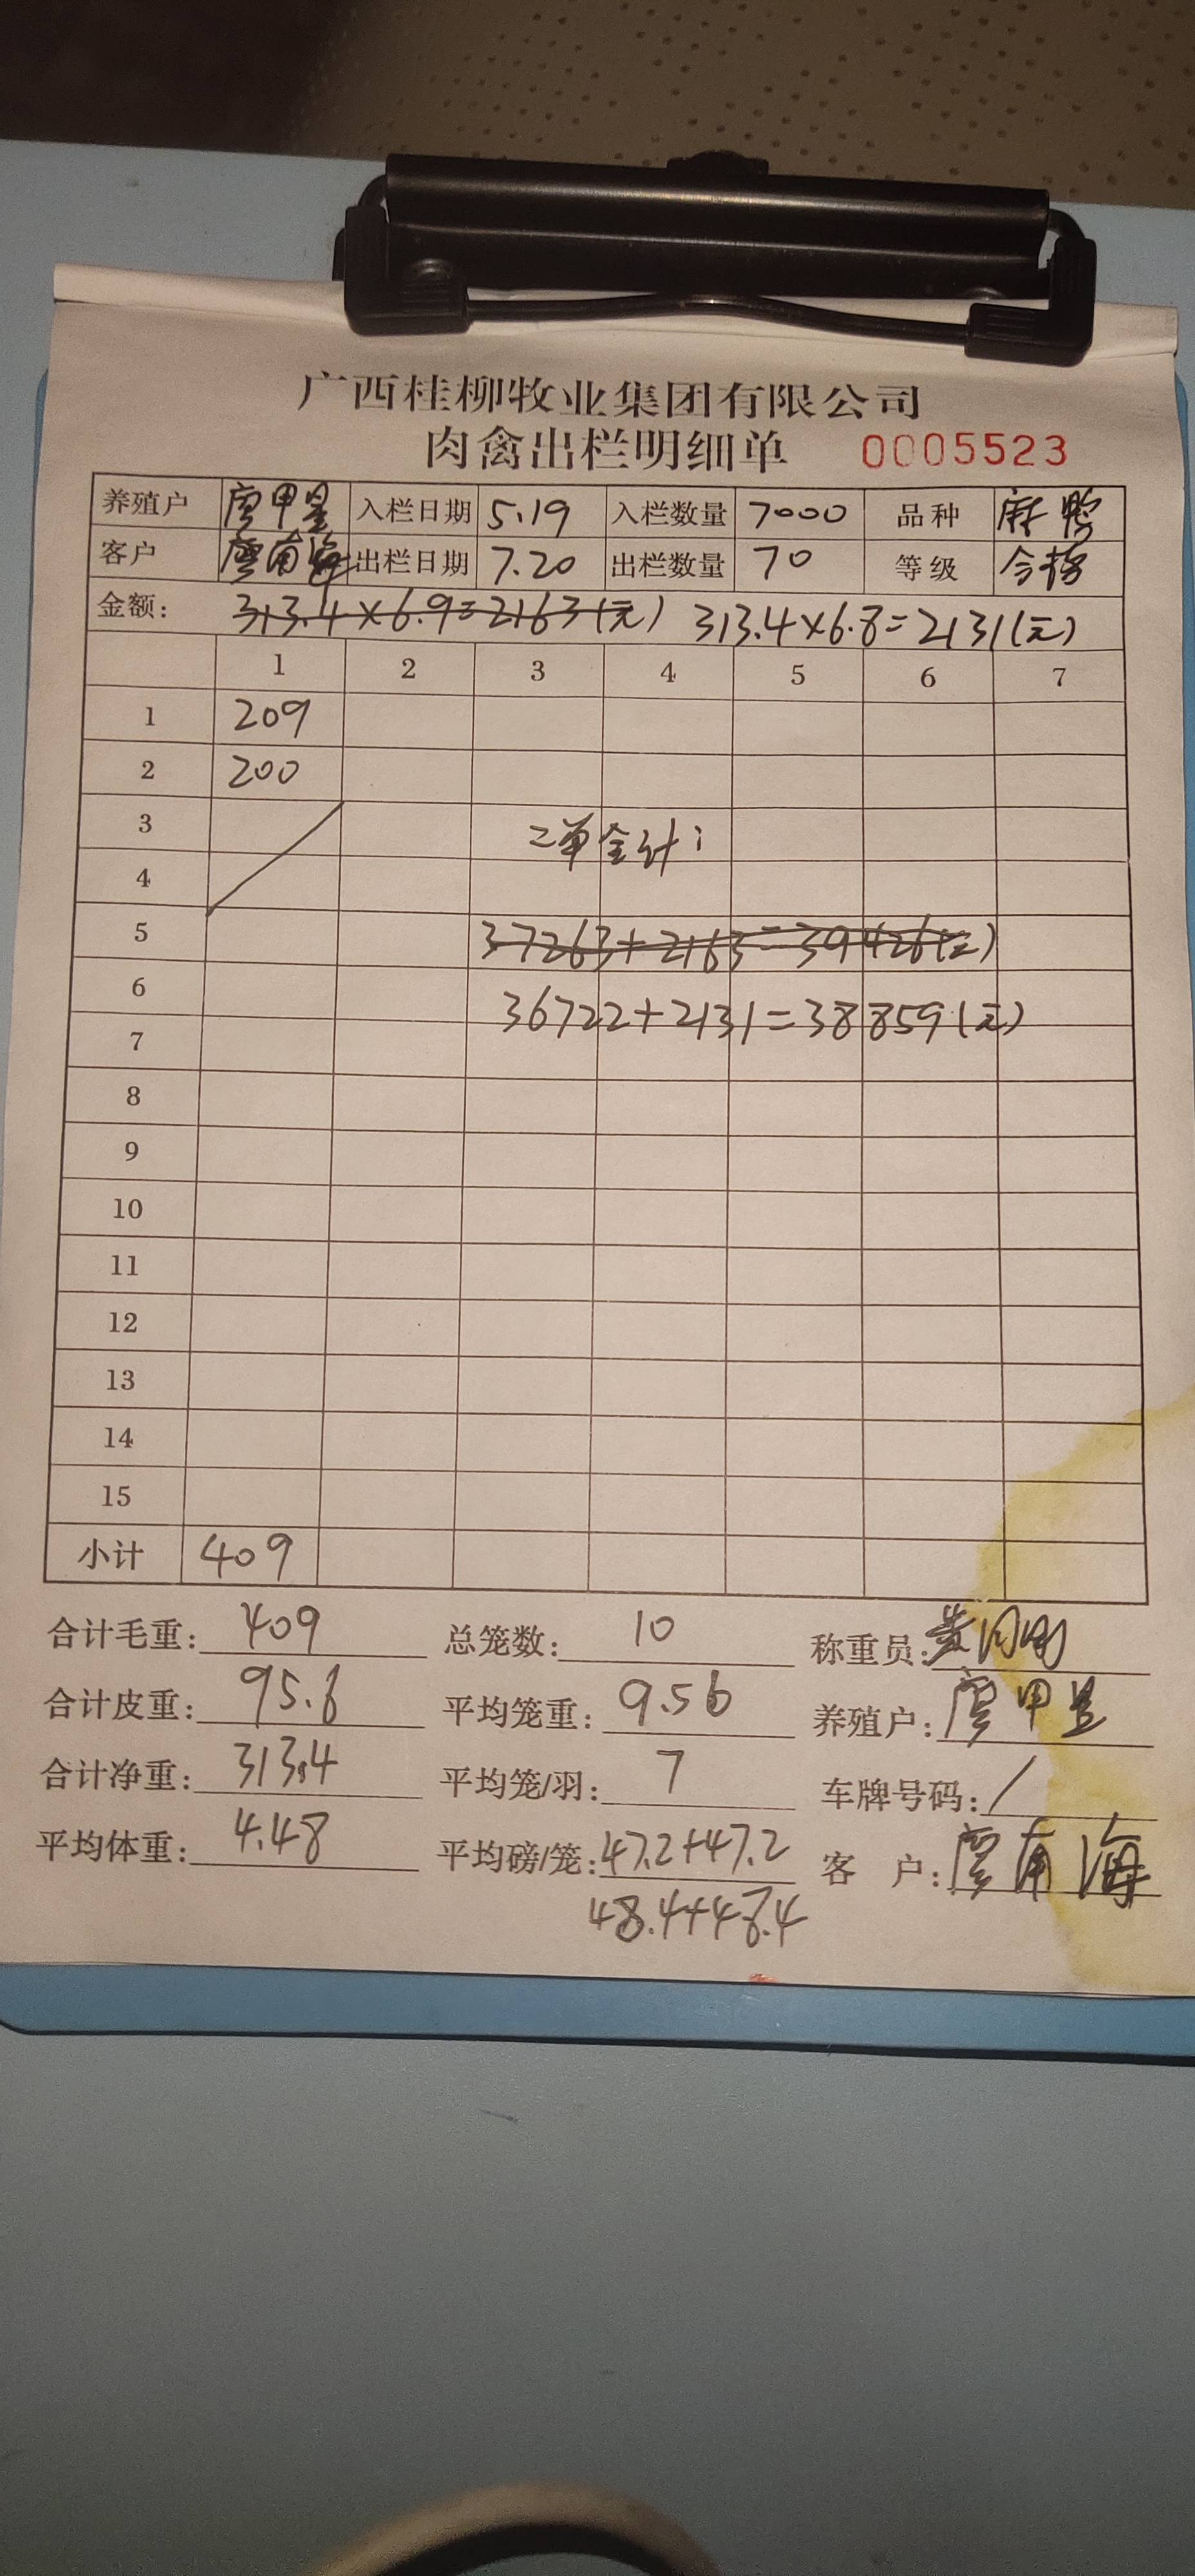 广西桂柳牧业集团有限公司
肉禽出栏明细单 0005523
养殖户 廖甲 入栏日期 5.19 入栏数量 7000 品种 麻鸭
客户 廖南海 出栏日期 7.20 出栏数量 70 等级 合格
金额: 313.4×6.9=2163(元) 313.4×6.8=2131(元)
1 2 3 4 5 6 7
1 209
2 200
3
二单合计:
4
5 37263+2163=39426(元)
6 36722+2131=38859(元)
7
8
9
10
11
12
13
14
15
小计 409
合计毛重: 409 总笼数: 10 称重员: 黄
合计皮重: 95.6 平均笼重: 9.56 养殖户: 廖甲
合计净重: 313.4 平均笼/羽: 7 车牌号码: /
平均体重: 4.48 平均磅/笼: 47.2+47.2 客 户: 廖南海
48.4+48.4